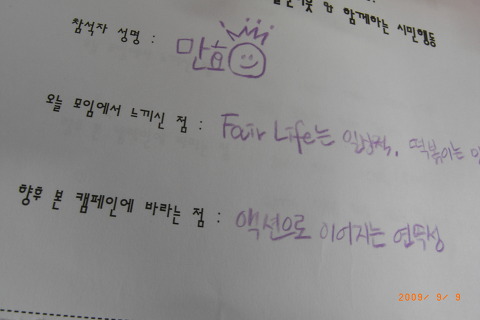 함께하는 시민행동
참석자 성명 : 만효
오늘 모임에서 느끼신 점 : Fair Life는 일상적, 떡볶이는
향후 본 캠페인에 바라는 점 : 액션으로 이어지는 연뚝성
2009/ 9/ 9